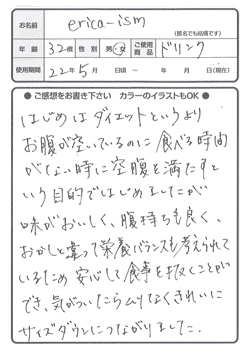 お名前
erica-ism
(匿名でも結構です)
年齢 32歳 性別 男・女 ご使用商品 ドリンク
使用期間 22年5月 日頃 ～ 年 月 日(現在)
●ご感想をお書き下さい カラーのイラストもOK●
はじめはダイエットというより
お腹が空いているのに食べる時間
がない時に空腹を満たすと
いう目的ではじめましたが
味がおいしく、腹持ちも良く、
おかしと違って栄養バランスも考えられて
いるため安心して食事を抜くことが
でき、気がついたらムリなくきれいに
サイズダウンにつながりました。